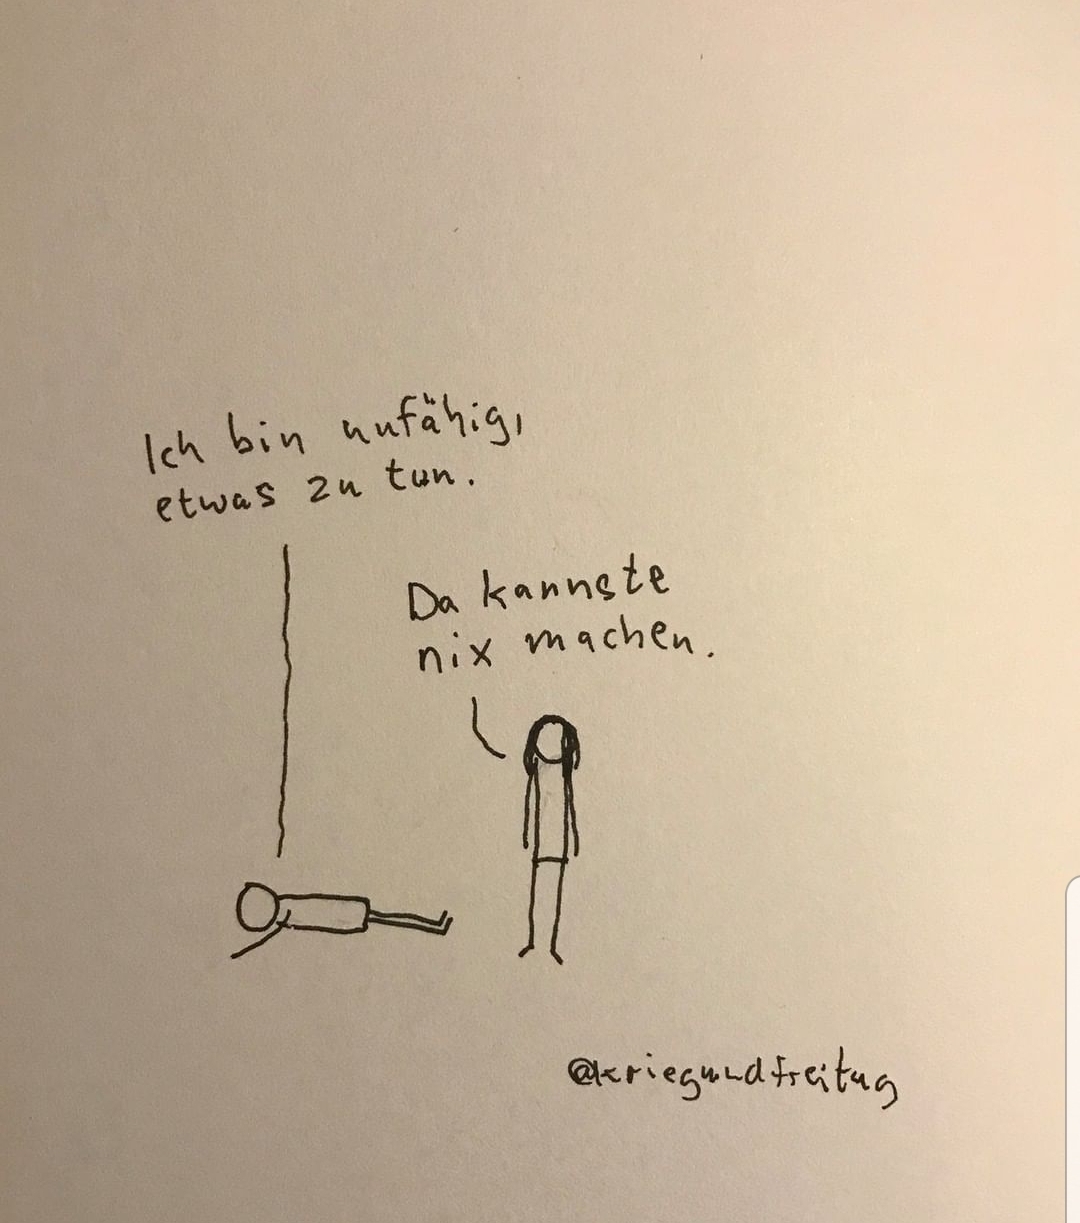 Ich bin unfähig,
etwas zu tun.
Da kannste
nix machen.
@kriegundfreitag